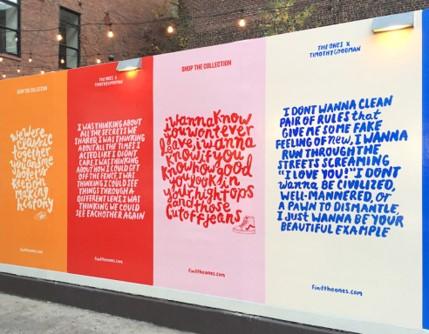 SHOP THE COLLECTION
we were
classic
together
making
history
THE ONES X
TIMOTHY GOODMAN
I WAS THINKING ABOUT
ALL THE SECRETS WE
SHARED, I WAS THINKING
ABOUT ALL THE TIMES I
ACTED LIKE I DIDN'T
CARE, I WAS THINKING
ABOUT HOW I COULD GET
OFF THE FENCE, I WAS
THINKING I COULD SEE
THINGS THROUGH A
DIFFERENT LENS, I WAS
THINKING WE COULD
SEE EACH OTHER AGAIN
findtheones.com
SHOP THE COLLECTION
i wanna know
you won't ever
leave, i wanna
know if you
know how good
you look in
your high tops
and those
cutoff jeans
findtheones.com
THE ONES X
TIMOTHY GOODMAN
I DONT WANNA CLEAN
PAIR OF RULES that
GIVE ME SOME FAKE
FEELING OF NEW, I WANNA
RUN THROUGH THE
STREETS SCREAMING
"I LOVE YOU!" I DONT
wanna BE CIVILIZED,
WELL-MANNERED, OR
A PAWN TO DISMANTLE,
I JUST WANNA BE YOUR
BEAUTIFUL EXAMPLE
findtheones.com